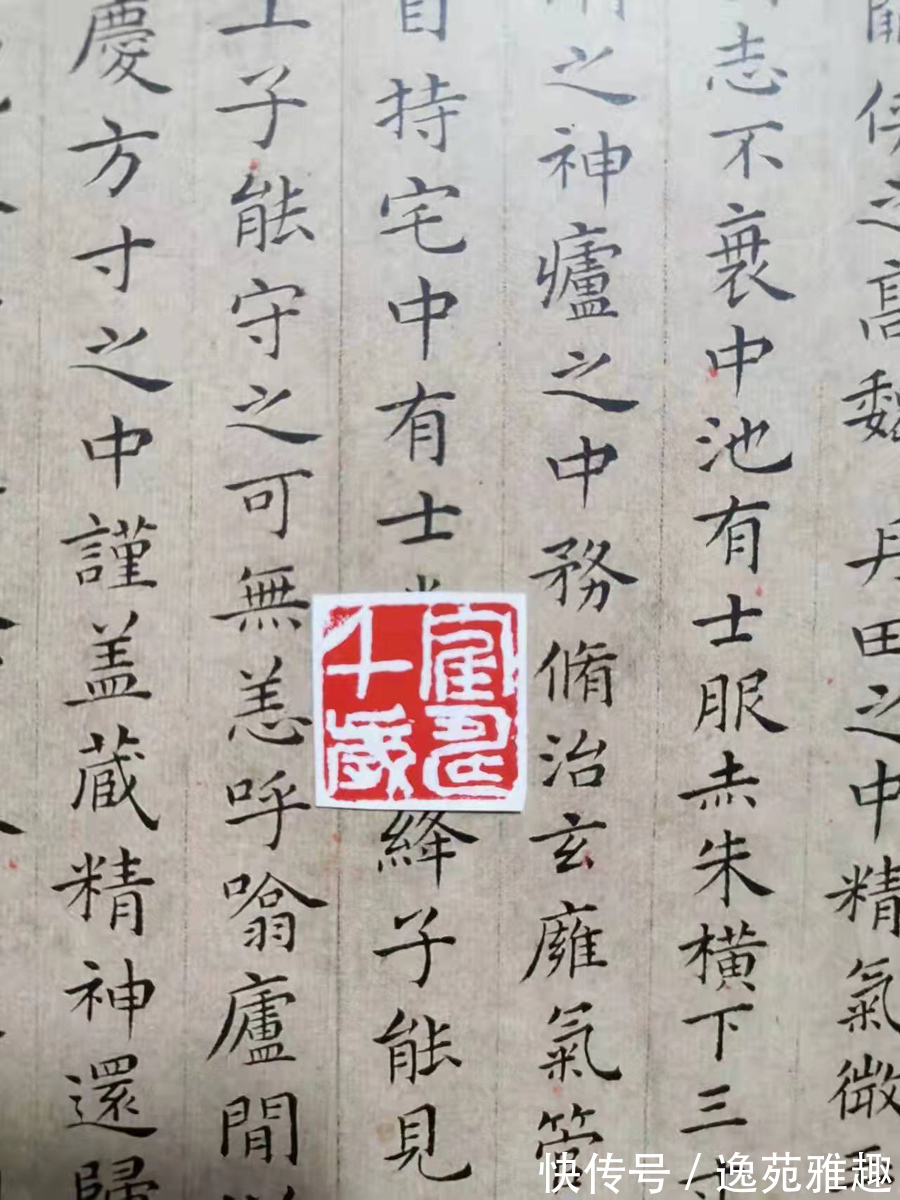 之高魏丹田之中精氣微
志不衰中池有士服赤朱横下三
之神廬之中務脩治玄廱氣管
自持宅中有士絳子能見
子能守之可無恙呼噏廬間
慶方寸之中謹盖蔵精神還歸
千歲
快传号 / 逸苑雅趣